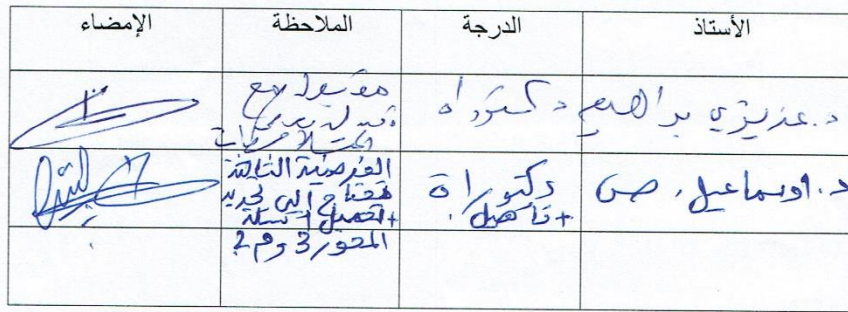 الأستاذ الدرجة الملاحظة الإمضاء
د. عزيزي براهيم دكتوراه مقبول مع
د. اوسماعيل. دكتوراة الفرضية الثالثة
+ تاهيل. تحتاج إلى تحديد
+ اسئلة
المحور 3 و م 2